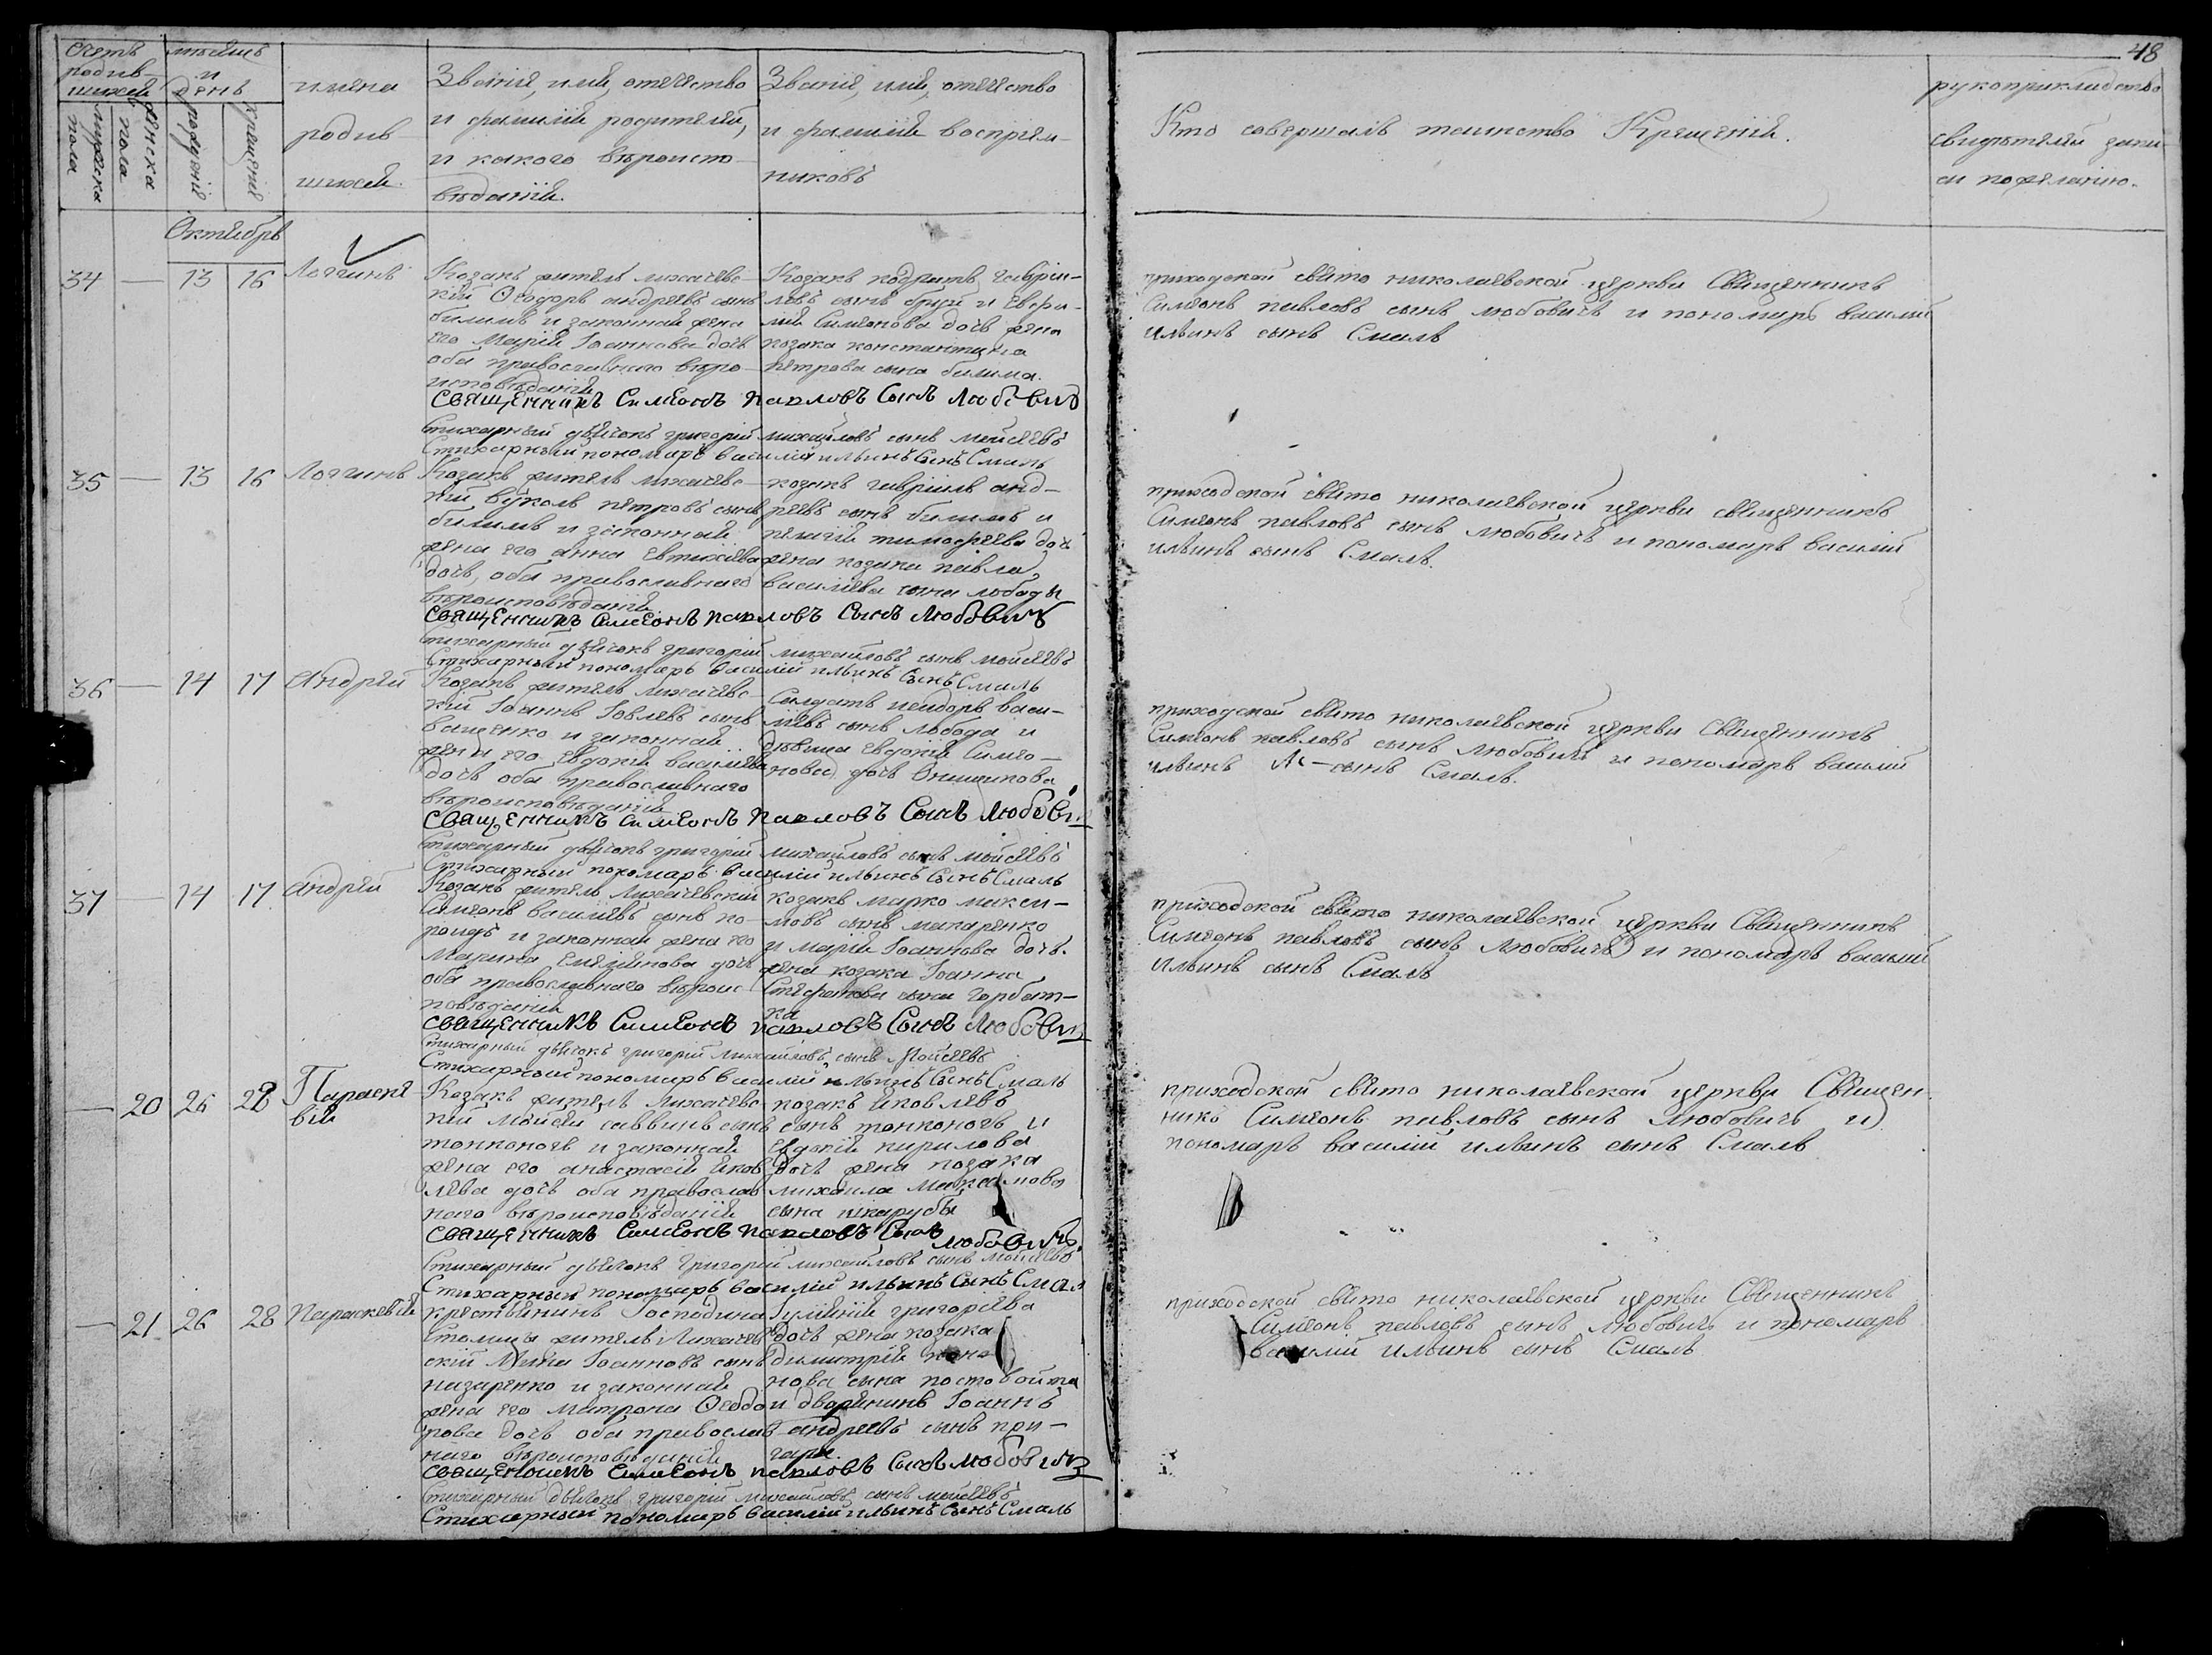 48
Счетъ родив-шихся
мѣсяцъ и день
мужеска пола
женска пола
рожденія
крещенія
имена
родив
шихся.
Званіе, имя, отчество
и фамилія родителей,
и какого вѣроиспо
вѣданія.
Званіе, имя, отчество
и фамилія воспріем-
никовъ
Кто совершалъ таинство Крещенія.
рукоприкладство
свидѣтелей запи-
си по желанію.
Октябрь
34 — 13 16 Логгинъ
Козакъ житель лихачевс-
кій Ѳеодоръ андреевъ сынъ
билимъ и законная жена
его Марія Іоаннова дочь
оба православнаго вѣро-
исповѣданія
Козакъ кодратъ гаврїи-
ловъ сынъ
мія Симеонова дочь жена
козака константина
петрова сына билима.
священникъ Симеонъ павловъ сынъ Любовичъ
Стихарный дьячокъ григорій михайловъ сынъ мойсеевъ
Стихарный пономарь василій ильинъ сынъ Смаль
приходской свято николаевской церкви Священникъ
Симеонъ павловъ сынъ любовичъ и пономарь василій
ильинъ сынъ Смаль
35 — 13 16 Логгинъ
Козакъ житель лихачевс-
кій вуколъ петровъ сынъ
билимъ и законная
жена его анна Евтихіева
дочь, оба православнаго
вѣроисповѣданія
козакъ гавріилъ анд-
реевъ сынъ билимъ и
пелагія тимофеева дочь
жена козака павла
василіева сына лободы
священникъ Симеонъ павловъ сынъ Любовичъ
Стихарный дьячокъ григорій михайловъ сынъ мойсеевъ
Стихарный пономарь василій ильинъ сынъ Смаль
приходской свято николаевской церкви священникъ
Симеонъ павловъ сынъ любовичъ и пономарь василій
ильинъ сынъ Смаль.
36 — 14 17 Андрей
Козакъ житель лихачевс-
кій Іоаннъ Іовлевъ сынъ
ващенко и законная
жена его евдокія василіева
дочь оба православнаго
вѣроисповѣданія
Солдатъ исидоръ васи-
ліевъ сынъ лобода и
дѣвица евдокія Симео-
нова дочь Онищикова
священникъ Симеонъ павловъ сынъ Любови
Стихарный дьячокъ григорій михайловъ сынъ мойсеевъ
Стихарный пономарь василій ильинъ сынъ Смаль
приходской свято николаевской церкви Священникъ
Симеонъ павловъ сынъ любовичъ и пономарь василій
ильинъ — сынъ Смаль.
37 — 14 17 андрей
Козакъ житель Лихачевскій
Симеонъ василіевъ сынъ ко-
роидъ и законная жена его
Марина Емеліянова дочь
оба православнаго вѣроис
повѣданія
козакъ марко макси-
мовъ сынъ макаренко
и марія Іоаннова дочь.
жена козака Іоанна
Стефанова сына Горбат-
ка
священникъ Симеонъ павловъ сынъ Любовичъ
Стихарный дьячокъ григорій михайловъ сынъ Мойсеевъ
Стихарный пономарь василій ильинъ сынъ Смаль
приходской свято николаевской церкви Священникъ
Симеонъ павловъ сынъ любовичъ и пономарь василій
Ильинъ сынъ Смаль
— 20 26 28 Параске
вія
Козакъ житель Лихачевс-
кій Мойсей саввинъ сынъ
тонконогъ и законная
жена его анастасія яков
лева дочь оба православ
наго вѣроисповѣданія
козакъ яковлевъ
сынъ тонконогъ и
Евдокія кирилова
дочь жена козака
михаила максимова
сына шкарубы
священникъ Симеонъ павловъ сынъ любовичъ
Стихарный дьячокъ Григорій михайловъ сынъ мойсеевъ
Стихарный пономарь василій ильинъ сынъ Смал
приходской свято николаевской церкви Священ-
никъ Симеонъ павловъ сынъ любовичъ и
пономарь василій ильинъ сынъ Смаль
— 21 26 28 Параскевія
крестьянинъ Господина
Столицы житель Лихачев
скій Іоанновъ сынъ
назаренко и законная
жена его матрона Ѳеодо
рова дочь оба православ
наго вѣроисповѣданія
Гуліянія григоріева
дочь жена козака
димитрія
нова сына постовойта
и дворянинъ Іоаннъ
андреевъ сынъ при-
гара.
священникъ Симеонъ павловъ сынъ любовичъ
Стихарный дьячокъ григорій михайловъ сынъ мойсеевъ
Стихарный пономарь василій ильинъ сынъ Смаль
приходской свято николаевской церкви Священникъ
Симеонъ павловъ сынъ любовичъ и пономарь
василій ильинъ сынъ Смаль